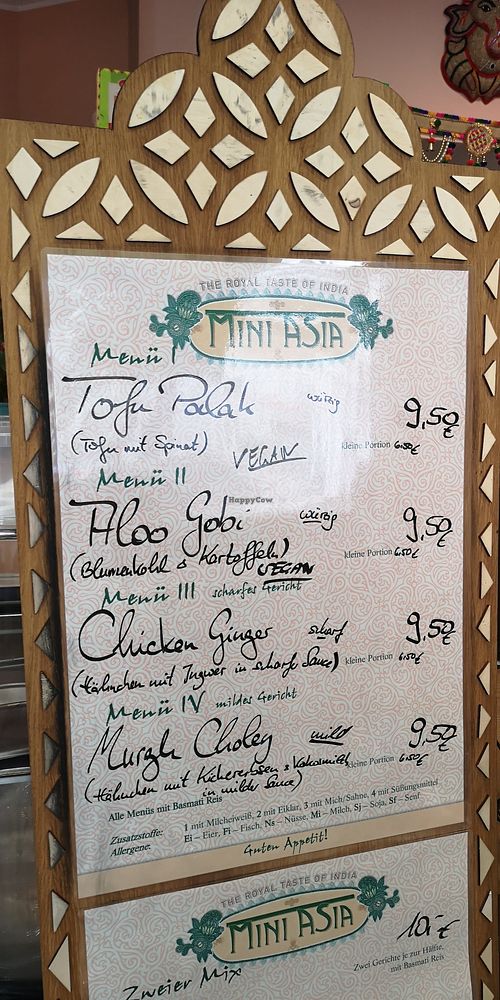 THE ROYAL TASTE OF INDIA
MINI ASIA
Menü I
Tofu Palak würzig 9,50€
(Tofu mit Spinat) VEGAN kleine Portion 6,50€
Menü II
HappyCow
Aloo Gobi würzig 9,50€
(Blumenkohl & Kartoffeln) kleine Portion 6,50€
VEGAN
Menü III scharfes Gericht
Chicken Ginger scharf 9,50€
(Hähnchen mit Ingwer in scharfe Sauce) kleine Portion 6,50€
Menü IV mildes Gericht
Murgh Choley mild 9,50€
(Hähnchen mit Kichererbsen & Kokosmilch kleine Portion 6,50€
in milder Sauce)
Alle Menüs mit Basmati Reis
Zusatzstoffe: 1 mit Milcheiweiß, 2 mit Eiklar, 3 mit Mich/Sahne, 4 mit Süßungsmittel
Allergene: Ei – Eier, Fi – Fisch, Ns – Nüsse, Mi – Milch, Sj – Soja, Sf – Senf
Guten Appetit!
THE ROYAL TASTE OF INDIA
MINI ASIA
10,- €
Zweier Mix
Zwei Gerichte je zur Hälfte,
mit Basmati Reis